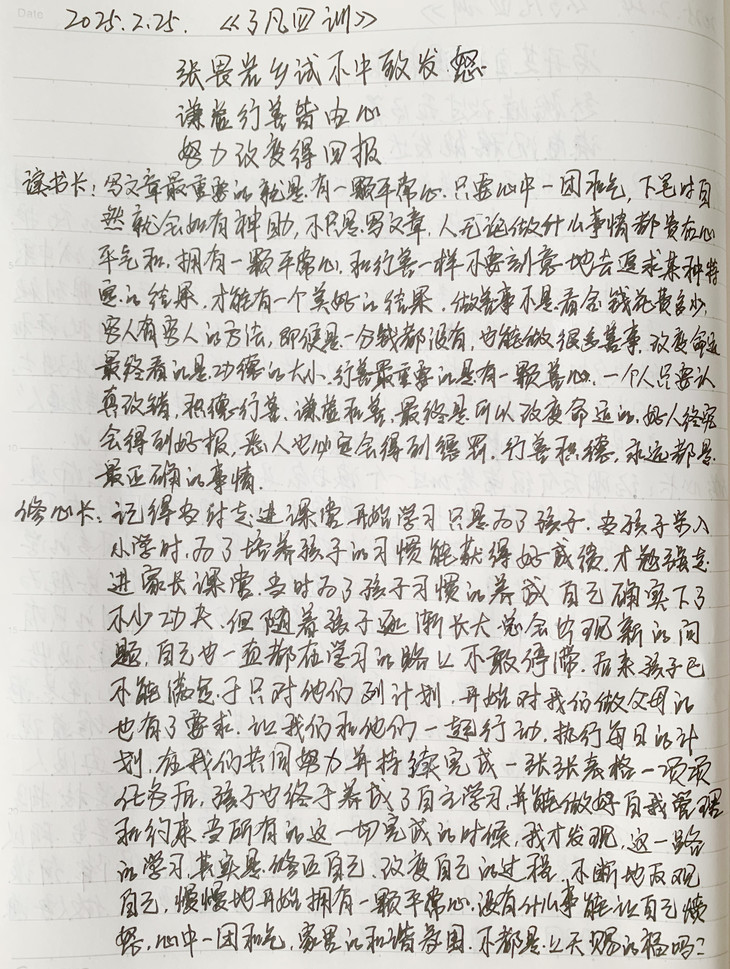 Date 2025.2.25. 《了凡四训》
张畏岩乡试不中致发怒
谦虚行善皆由心
努力改变得回报
读书卡：写文章最重要的就是有一颗平常心.只要心中一团和气,下笔时自
然就会如有神助,不只是写文章,人无论做什么事情都贵在心
平气和.拥有一颗平常心.和行善一样不要刻意地去追求某种特
定的结果.才能有一个美好的结果.做善事不是看念钱花费多少,
穷人有穷人的方法,即便是一分钱都没有,也能做很多善事.改变命运
最终看的是功德的大小.行善最重要的是有一颗善心.一个人只要认
真改错,积德行善,谦虚和善,最终是可以改变命运的.好人终究
会得到好报,恶人也必定会得到惩罚.行善积德,永远都是
最正确的事情.
修心卡：记得当时走进课堂开始学习只是为了孩子.当孩子步入
小学时,为了培养孩子的习惯能获得好成绩.才勉强走
进家长课堂.当时为了孩子习惯的养成自己确实下了
不少功夫.但随着孩子逐渐长大总会出现新的问
题,自己也一直都在学习的路上不敢停滞.后来孩子已
不能满足于只对他们列计划.开始对我们做父母的
也有了要求.让我们和他们一起行动.执行每日的计
划,在我们共同努力并持续完成一张张表格一项项
任务后,孩子也终于养成了自主学习并能做好自我管理
和约束.当所有的这一切完成的时候,我才发现,这一路
的学习其实是修正自己.改变自己的过程.不断地反观
自己,慢慢地开始拥有一颗平常心.没有什么事能让自己愤
怒,心中一团和气,家里的和谐氛围.不都是上天赐的福吗?